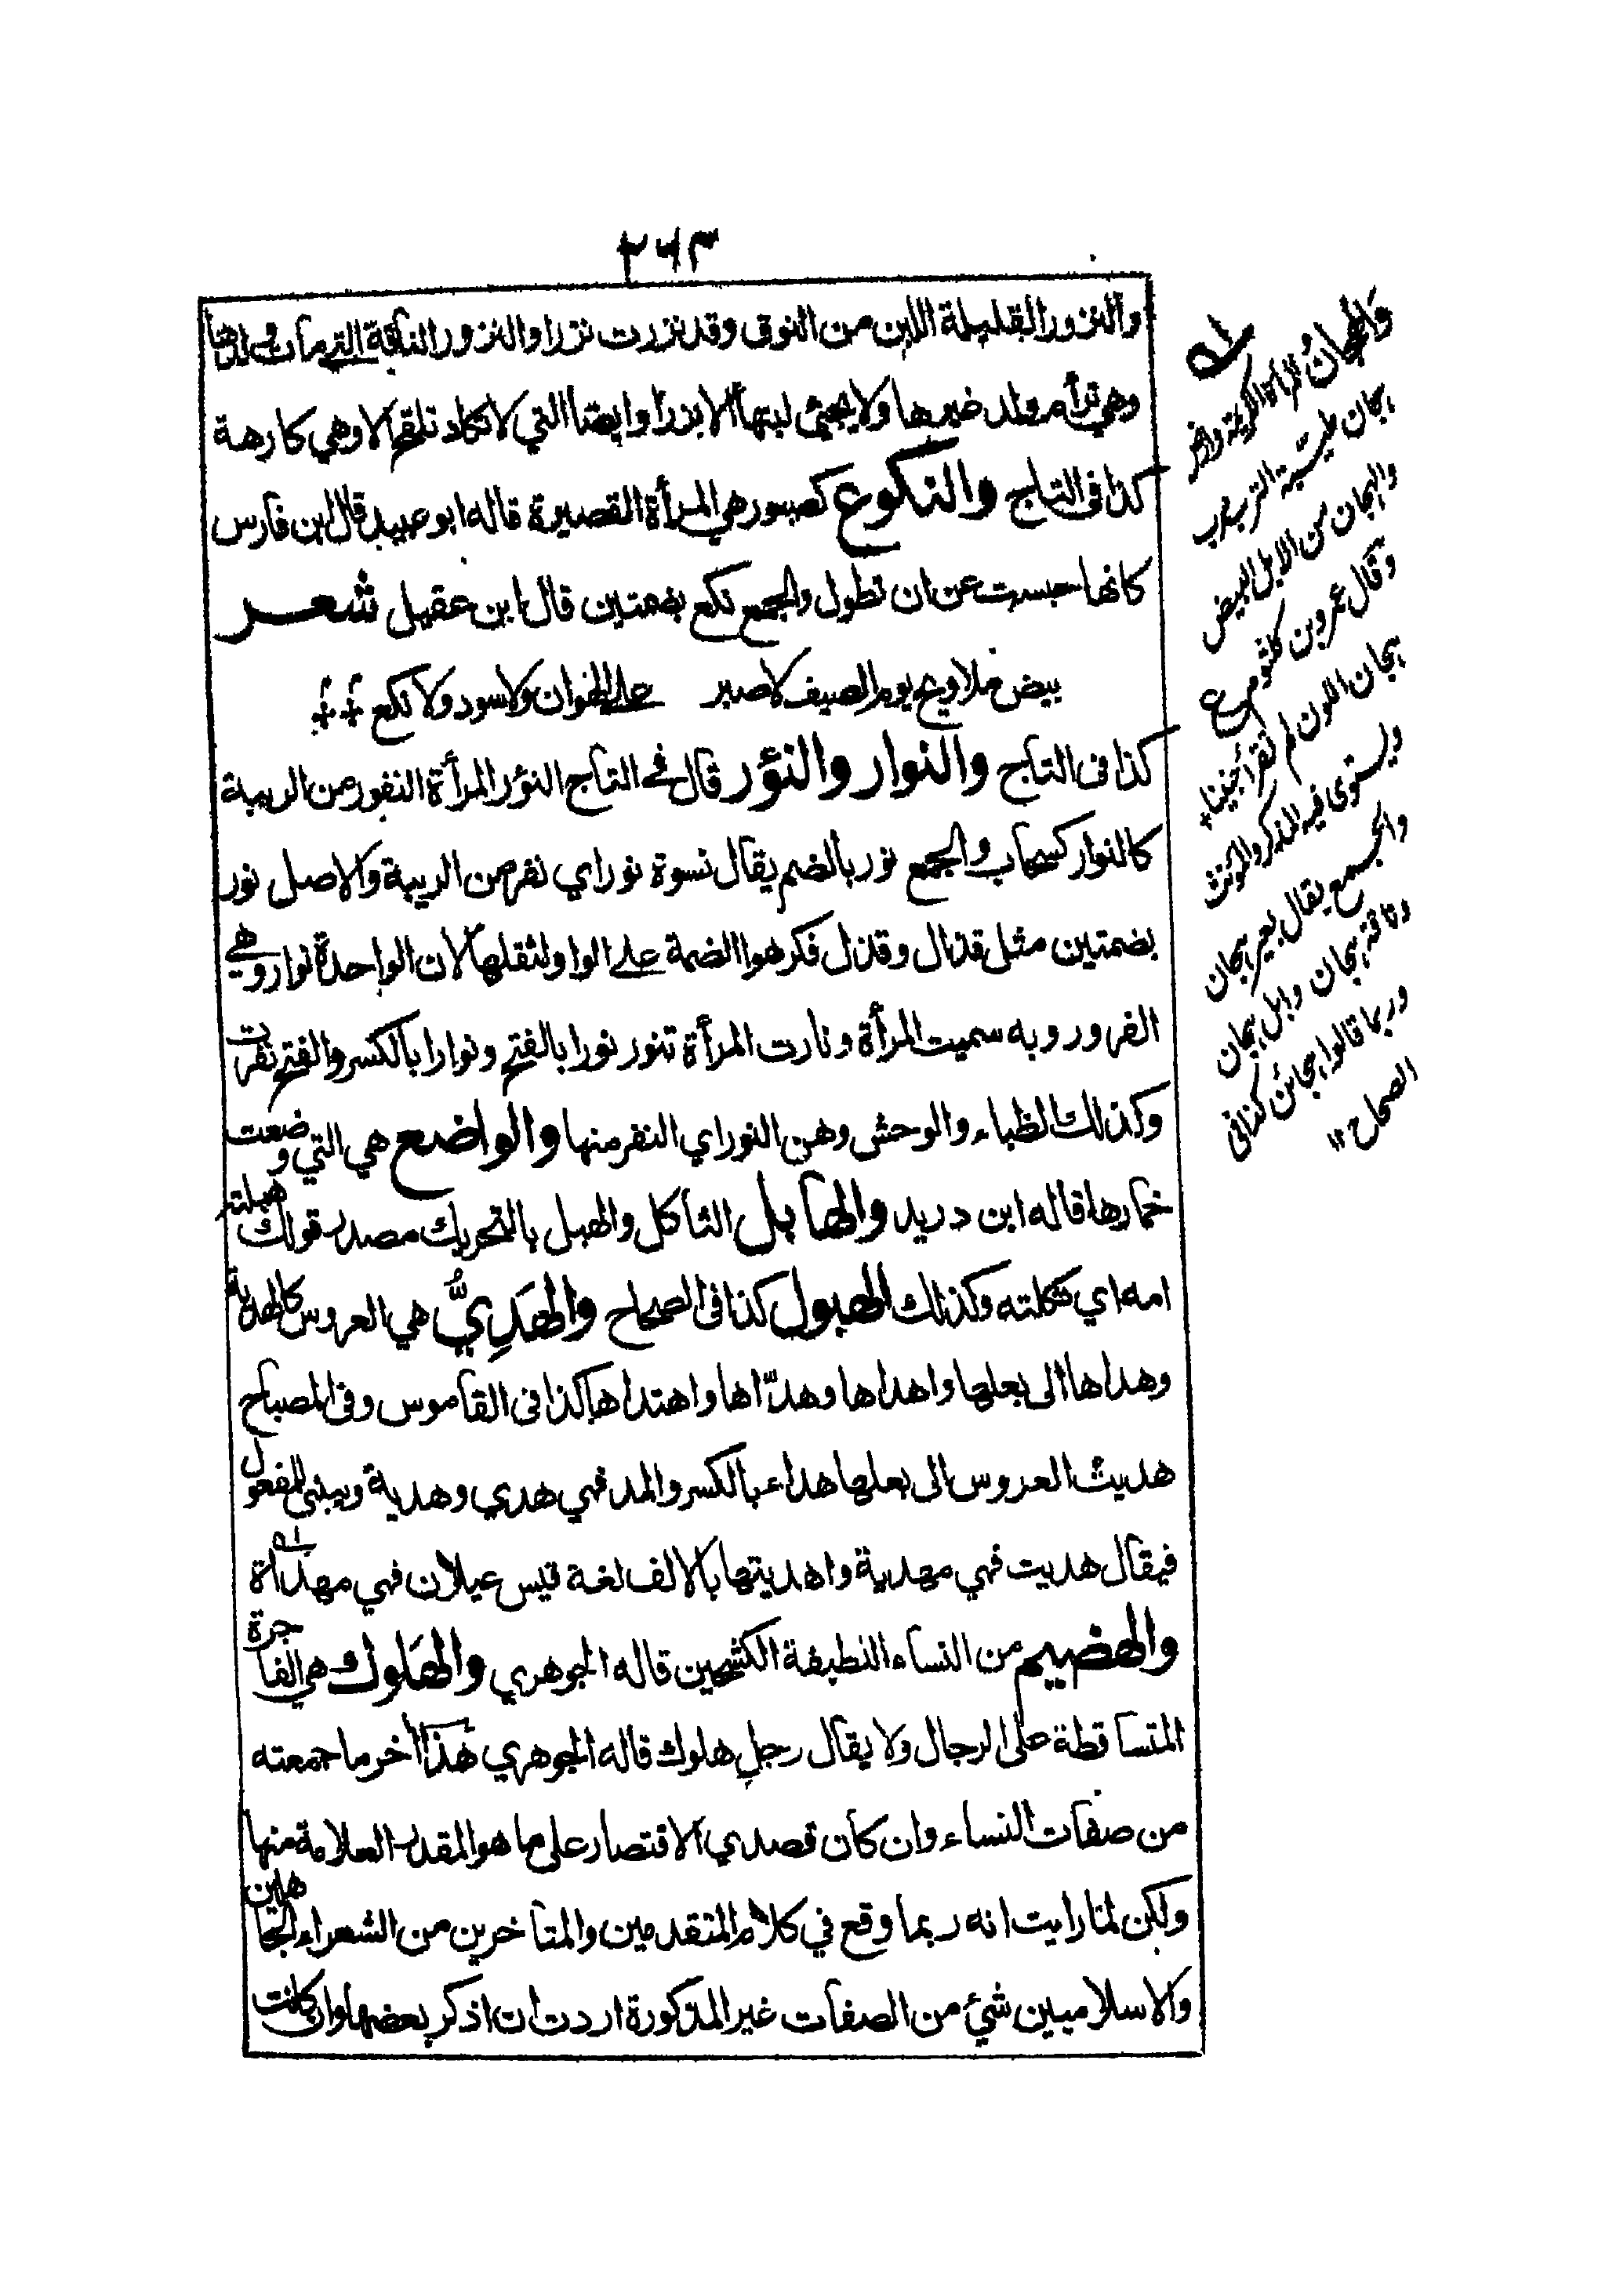 ٢٦٣
والنزور القليلة اللبن من النوق وقد نزرت نزرا والنزور الناقة التي مات ولدها
وهي ترأم ولد غيرها ولا يجئ لبنها الا نزرا وايضا التي لا تكاد تلقح الا وهي كارهة
كذا فى التاج والنكوع كصبور هي المرأة القصيرة قاله ابو عبيد قال ابن فارس
كانها حبست عن ان تطول والجمع نكع بضمتين قال ابن عقيل شعر
بيض ملاويح يوم الصيف لا صبر على الهوان ولا سود ولا نكع
كذا فى التاج والنوار والنؤر قال في التاج النؤر المرأة النفور من الريبة
كالنوار كسحاب والجمع نور بالضم يقال نسوة نور اي نفر من الريبة والاصل نور
بضمتين مثل قذال وقذل فكرهوا الضمة على الواو لثقلها لان الواحدة نوار وهي
الفرور وبه سميت المرأة ونارت المرأة تنور نورا بالفتح ونوارا بالكسر والفتح نفرت
وكذلك الظباء والوحش وهن النور اي النفر منها والواضع هي التي وضعت
خمارها قاله ابن دريد والهابل الثاكل والهبل بالتحريك مصدر قولك هبلته
امه اي ثكلته وكذلك الهبول كذا فى الصحاح والهَدِيُّ هي العروس كالهدية
وهداها الى بعلها واهداها وهدّاها واهتداها كذا فى القاموس وفى المصباح
هديت العروس الى بعلها هداء بالكسر والمد فهي هدي وهدية ويبنى للمفعول
فيقال هديت فهي مهدية واهديتها بالالف لغة قيس عيلان فهي مهداة
والهضيم من النساء اللطيفة الكشحين قاله الجوهري والهَلوك وهي الفاجرة
المتساقطة على الرجال ولا يقال رجل هلوك قاله الجوهري هذا اخر ما جمعته
من صفات النساء وان كان قصدي الاقتصار على ما هو المقدر العلامة منها
ولكن لما رايت انه ربما وقع في كلام المتقدمين والمتاخرين من الشعراء الجاهلين
والاسلاميين شئ من الصفات غير المذكورة اردت ان اذكر بعضها وان كانت
والهجانُ المرأة الكريمة وارض
هجان طيبة الترب
والهجان من الابل البيض
وقال عمرو بن كلثوم ع
هجان اللون لم تقرأ جنينا
ويستوى فيه المذكر والمؤنث
والجمع يقال بعير هجان
وناقة هجان وابل هجان
وربما قالوا هجائن كذا فى
الصحاح ١٢